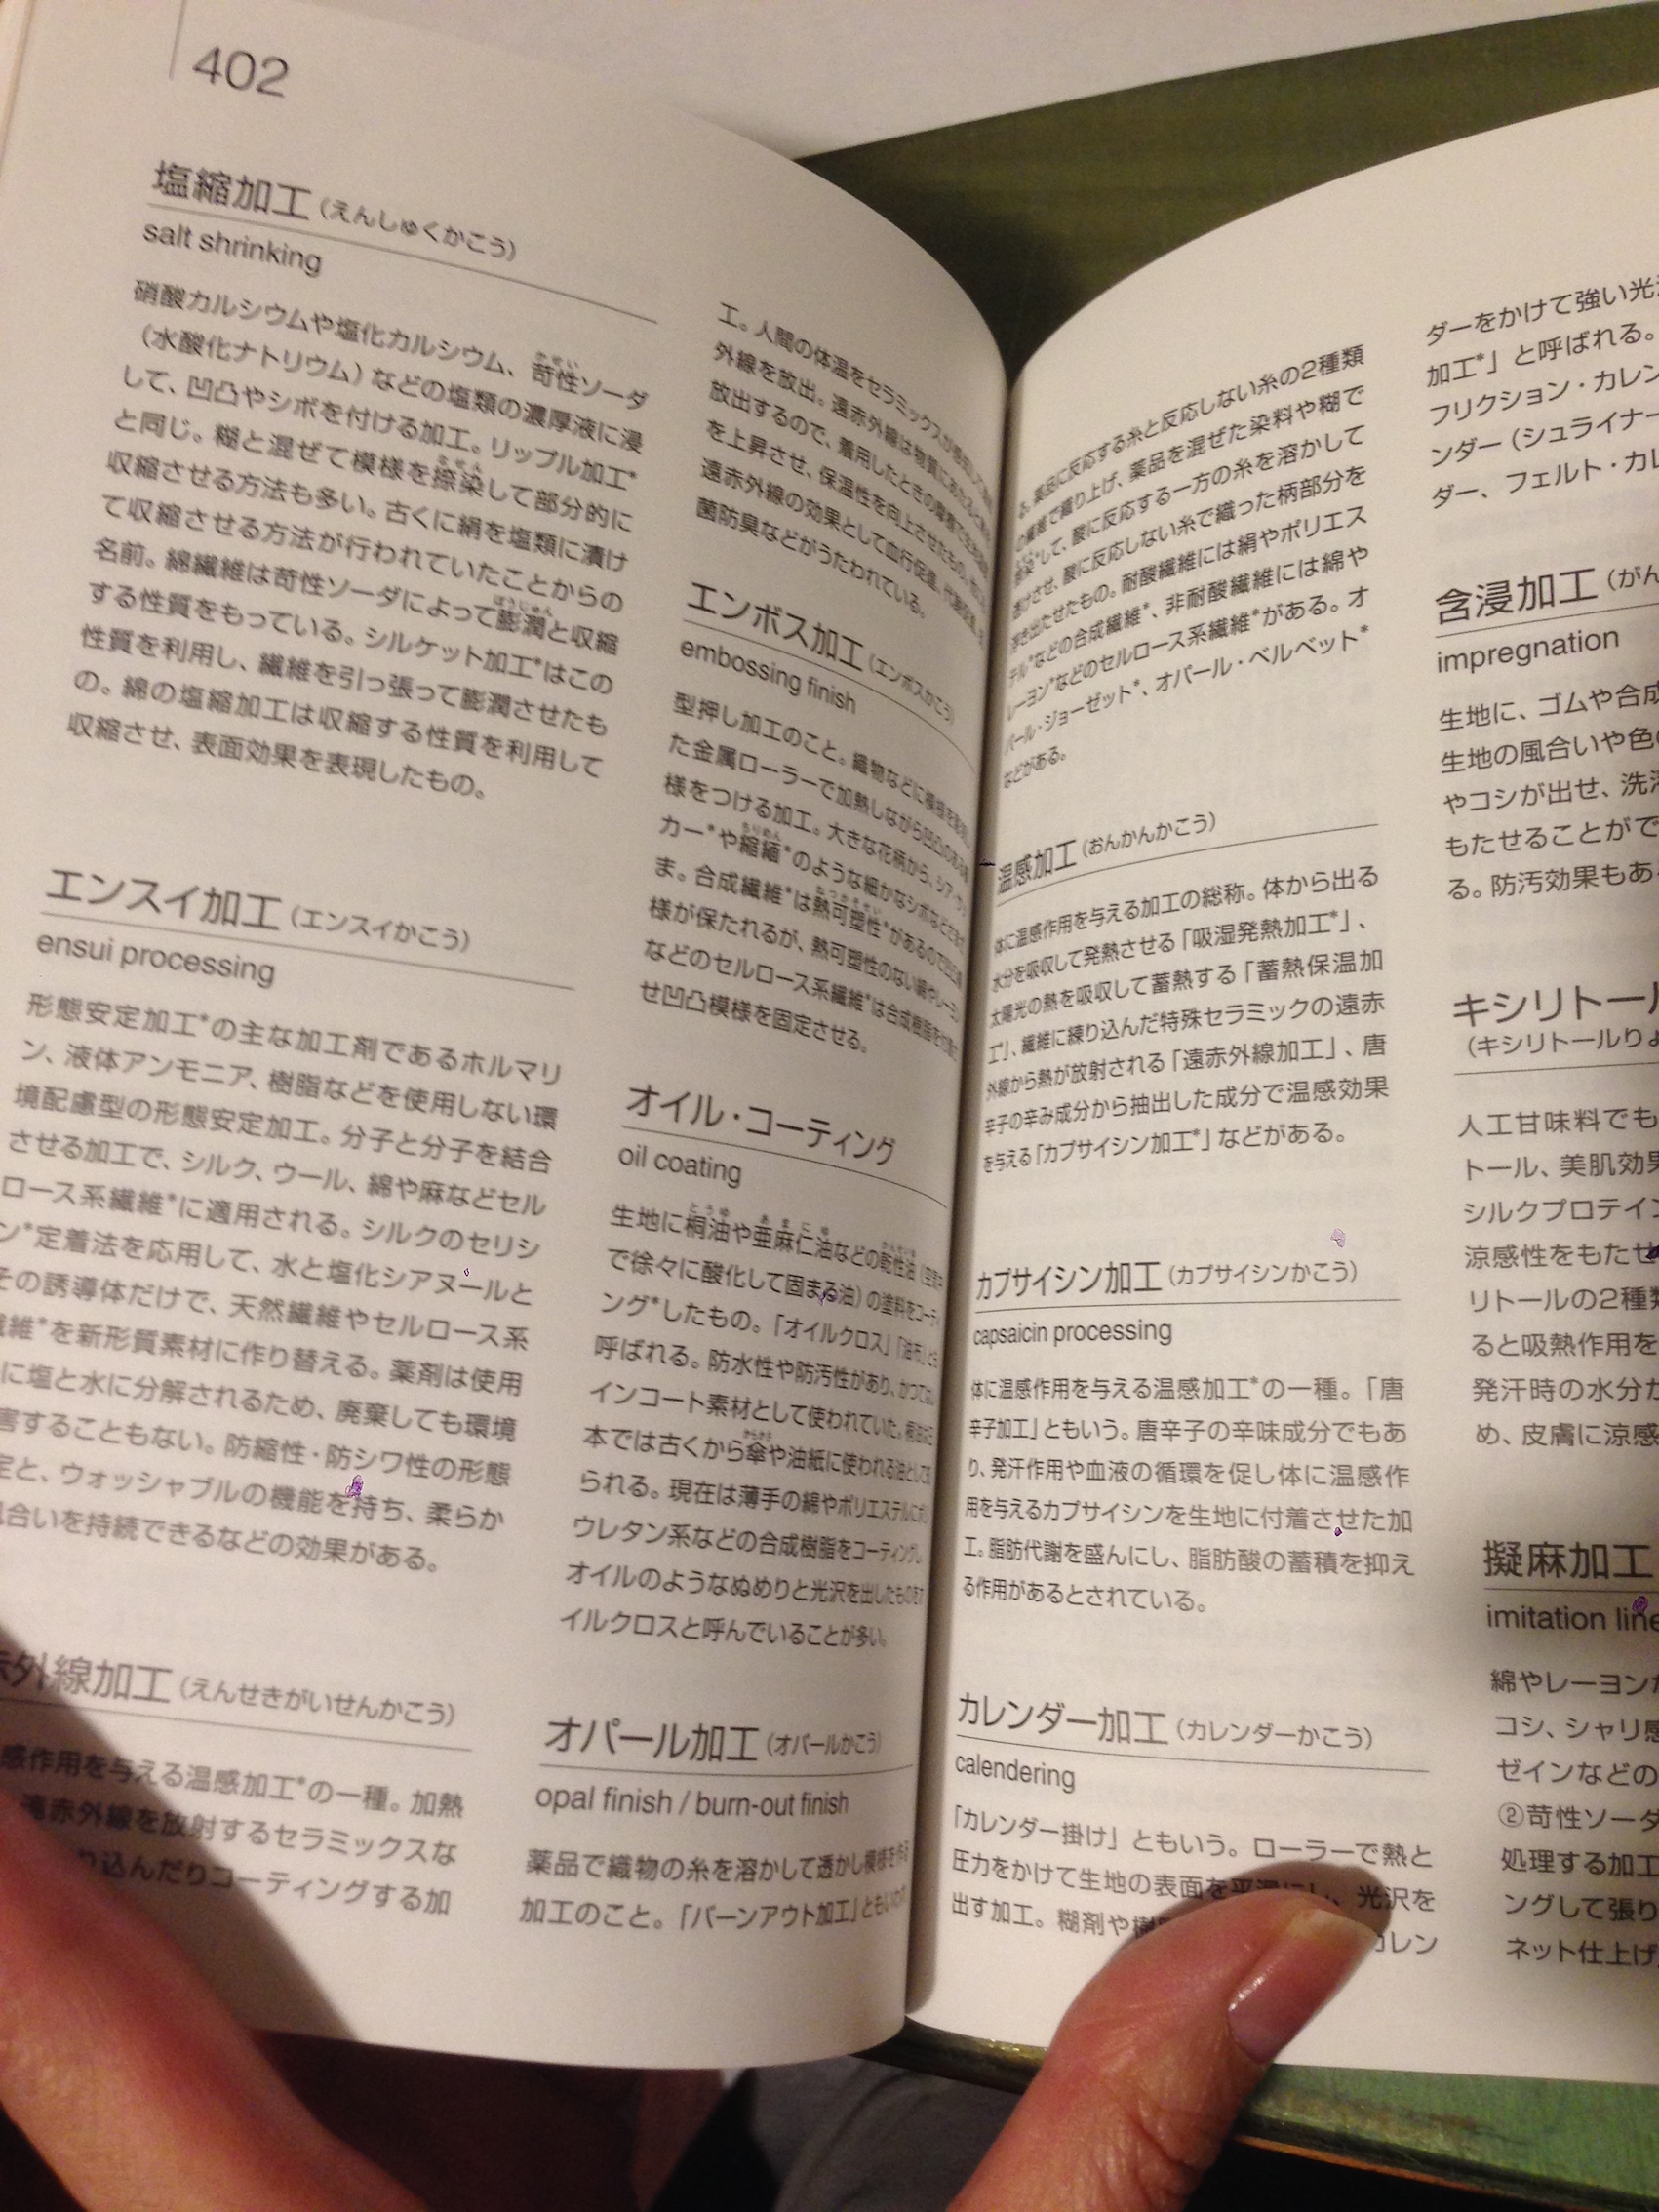 402
塩縮加工(えんしゅくかこう)
salt shrinking
硝酸カルシウムや塩化カルシウム、苛性ソーダ
(水酸化ナトリウム)などの塩類の濃厚液に浸
して、凹凸やシボを付ける加工。リップル加工*
と同じ。糊と混ぜて模様を捺染して部分的に
収縮させる方法も多い。古くに絹を塩類に漬け
て収縮させる方法が行われていたことからの
名前。綿繊維は苛性ソーダによって膨潤と収縮
する性質をもっている。シルケット加工*はこの
性質を利用し、繊維を引っ張って膨潤させたも
の。綿の塩縮加工は収縮する性質を利用して
収縮させ、表面効果を表現したもの。
エンスイ加工(エンスイかこう)
ensui processing
形態安定加工*の主な加工剤であるホルマリ
ン、液体アンモニア、樹脂などを使用しない環
境配慮型の形態安定加工。分子と分子を結合
させる加工で、シルク、ウール、綿や麻などセル
ロース系繊維*に適用される。シルクのセリシ
ン*定着法を応用して、水と塩化シアヌールと
その誘導体だけで、天然繊維やセルロース系
繊維*を新形質素材に作り替える。薬剤は使用
に塩と水に分解されるため、廃棄しても環境
害することもない。防縮性・防シワ性の形態
定と、ウォッシャブルの機能を持ち、柔らか
合いを持続できるなどの効果がある。
外線加工(えんせきがいせんかこう)
感作用を与える温感加工*の一種。加熱
遠赤外線を放射するセラミックスな
り込んだりコーティングする加
工。人間の体温をセラミックスが
外線を放出。遠赤外線は物質にあたると
放出するので、着用したときの
を上昇させ、保温性を向上させたもの。
遠赤外線の効果として血行促進、代謝
菌防臭などがうたわれている。
エンボス加工(エンボスかこう)
embossing finish
型押し加工のこと。織物などに模様を
た金属ローラーで加熱しながら凹凸のある
様をつける加工。大きな花柄から、シアサッ
カー*や縮緬*のような細かなシボなどさまざ
ま。合成繊維*は熱可塑性*があるので凹凸模
様が保たれるが、熱可塑性のない綿やレーヨン
などのセルロース系繊維*は合成樹脂を
せ凹凸模様を固定させる。
オイル・コーティング
oil coating
生地に桐油や亜麻仁油などの乾性油(空気中
で徐々に酸化して固まる油)の塗料をコーティ
ング*したもの。「オイルクロス」「油布」とも
呼ばれる。防水性や防汚性があり、かつては
インコート素材として使われていた。桐油は
本では古くから傘や油紙に使われる油として
られる。現在は薄手の綿やポリエステルにポリ
ウレタン系などの合成樹脂をコーティング。
オイルのようなぬめりと光沢を出したものをオ
イルクロスと呼んでいることが多い。
オパール加工(オパールかこう)
opal finish / burn-out finish
薬品で織物の糸を溶かして透かし模様を作る
加工のこと。「バーンアウト加工」ともいわれ
る。薬品に反応する糸と反応しない糸の2種類
の繊維で織り上げ、薬品を混ぜた染料や糊で
捺染*して、酸に反応する一方の糸を溶かして
透けさせ、酸に反応しない糸で織った柄部分を
浮き出たせたもの。耐酸繊維には絹やポリエス
テル*などの合成繊維*、非耐酸繊維には綿や
レーヨン*などのセルロース系繊維*がある。オ
パール・ジョーゼット*、オパール・ベルベット*
などがある。
温感加工(おんかんかこう)
体に温感作用を与える加工の総称。体から出る
水分を吸収して発熱させる「吸湿発熱加工*」、
太陽光の熱を吸収して蓄熱する「蓄熱保温加
工*」、繊維に練り込んだ特殊セラミックの遠赤
外線から熱が放射される「遠赤外線加工」、唐
辛子の辛み成分から抽出した成分で温感効果
を与える「カプサイシン加工*」などがある。
カプサイシン加工(カプサイシンかこう)
capsaicin processing
体に温感作用を与える温感加工*の一種。「唐
辛子加工」ともいう。唐辛子の辛味成分でもあ
り、発汗作用や血液の循環を促し体に温感作
用を与えるカプサイシンを生地に付着させた加
工。脂肪代謝を盛んにし、脂肪酸の蓄積を抑え
る作用があるとされている。
カレンダー加工(カレンダーかこう)
calendering
「カレンダー掛け」ともいう。ローラーで熱と
圧力をかけて生地の表面を平滑にし、光沢を
出す加工。糊剤や樹 カレン
ダーをかけて強い光
加工*」と呼ばれる。
フリクション・カレン
ンダー(シュライナー
ダー、フェルト・カレ
含浸加工(がん
impregnation
生地に、ゴムや合成
生地の風合いや色
やコシが出せ、洗
もたせることがで
る。防汚効果もあ
キシリトール
(キシリトールりょ
人工甘味料でも
トール、美肌効果
シルクプロテイン
涼感性をもたせ
リトールの2種類
ると吸熱作用を
発汗時の水分
め、皮膚に涼感
擬麻加工
imitation line
綿やレーヨン
コシ、シャリ感
ゼインなどの
②苛性ソーダ
処理する加工
ングして張り
ネット仕上げ